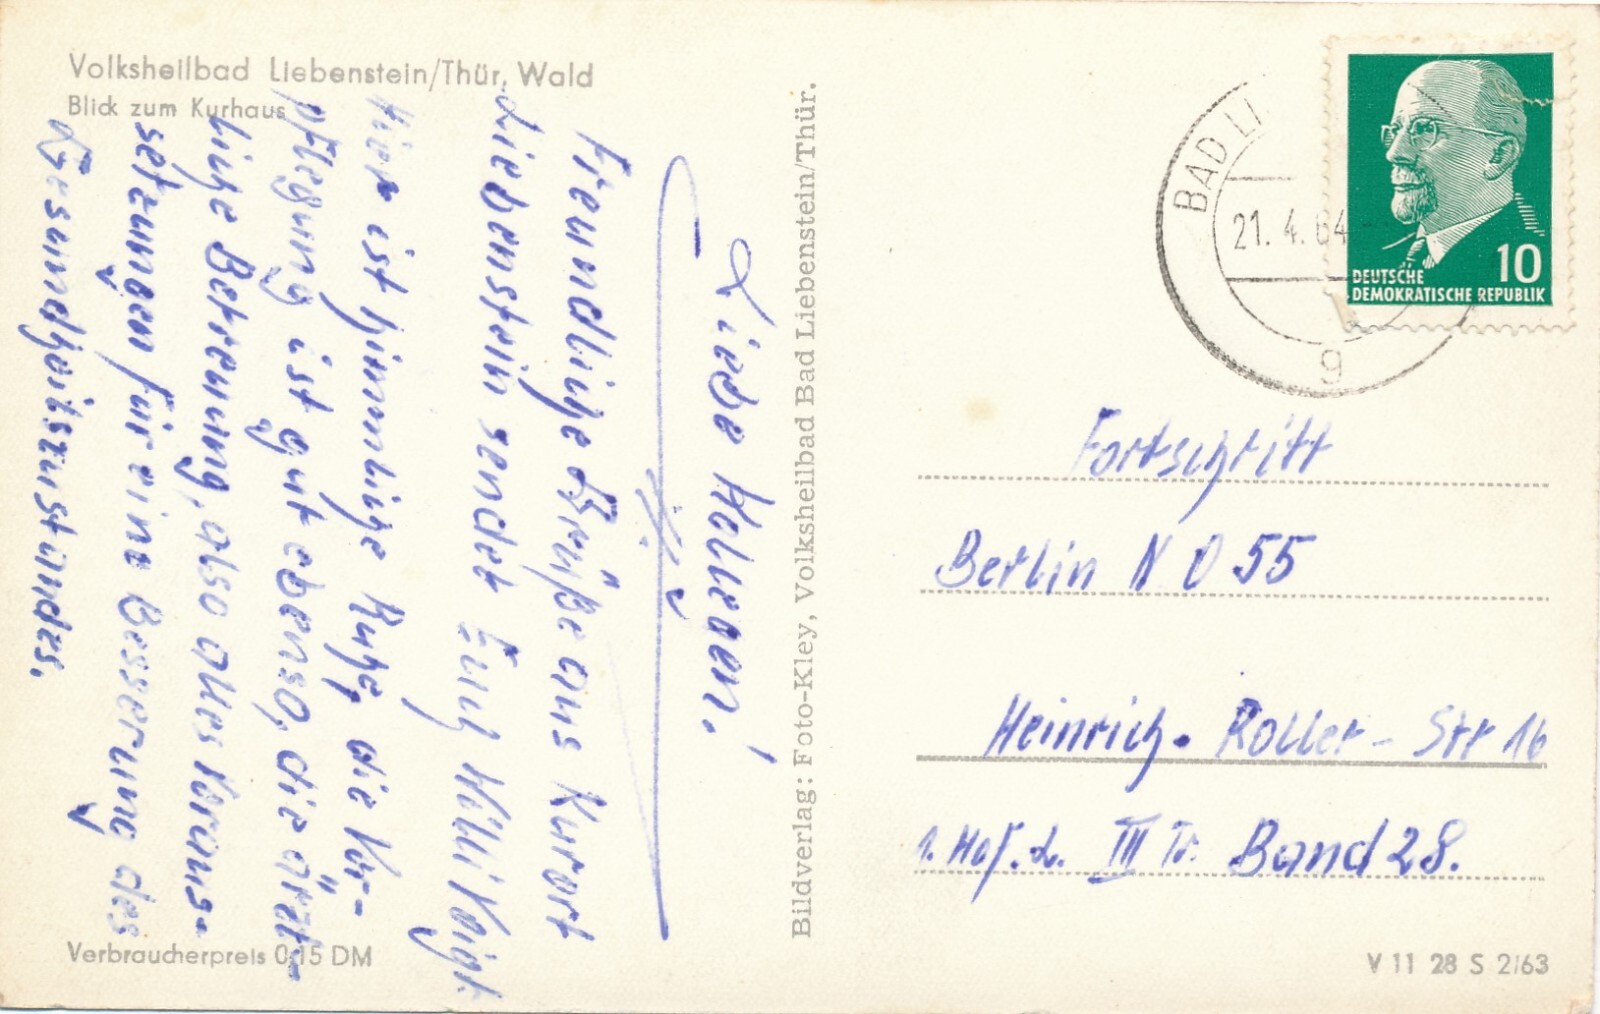 Volksheilbad Liebenstein/Thür. Wald
Blick zum Kurhaus
Liebe Kollegen!
Freundliche Grüße aus Kurort
Liebenstein sendet Euch Willi Voigt
Hier ist himmlige Ruhe, die Ver-
pflegung ist gut ebenso, die ärzt-
liche Betreuung, also alles Voraus-
setzungen für eine Besserung des
Gesundheitszustandes.
Verbraucherpreis 0,15 DM
Bildverlag: Foto-Kley, Volksheilbad Bad Liebenstein/Thür.
BAD LI
21. 4. 64
g
10
DEUTSCHE
DEMOKRATISCHE REPUBLIK
Fortschritt
Berlin N O 55
Heinrich-Roller-Str 16
1. Hof. L. III Tr. Band 28.
V 11 28 S 2/63